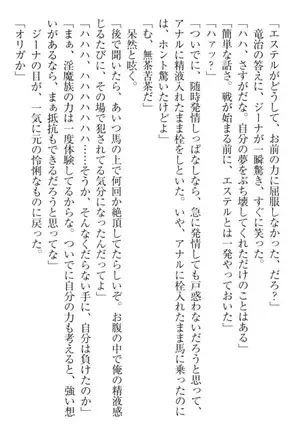 「エステルがどうして、お前の力に屈服しなかった、だろ？」
竜治の答えに、ジーナが一瞬驚き、すぐに笑った。
「ハハ、さすがだな。自分の夢をぶち壊してくれただけのことはある」
「簡単な話さ、戦が始まる前に、エステルとは一発やっておいた」
「ハァッ？」
「ついでに、随時発情しっぱなしなら、急に発情しても戸惑わないだろうと思って、
アナルに精液入れたまま栓をした。いや、アナルに栓入れたまま馬に乗ったのに
は、ホント驚いたけどよ」
「む、無茶苦茶だ」
呆然と呟く。
「後で聞いたら、あいつ馬の上で何回か絶頂してたらしいぞ。お腹の中で俺の精液感
じるたびに、その場で犯されてる気分になったんだと」
「ハハハ、ハハハハハハハ……そうか、そんなくだらない手に、自分は負けたのか」
「まぁ、淫魔族の力は一度体験してるからな。ついでに自分の力も考えると、強い想
いがあるなら、まぁ抵抗もできるだろうと思ってな」
ジーナの目が、一気に元の怜悧なものに戻った。
「オリガか」